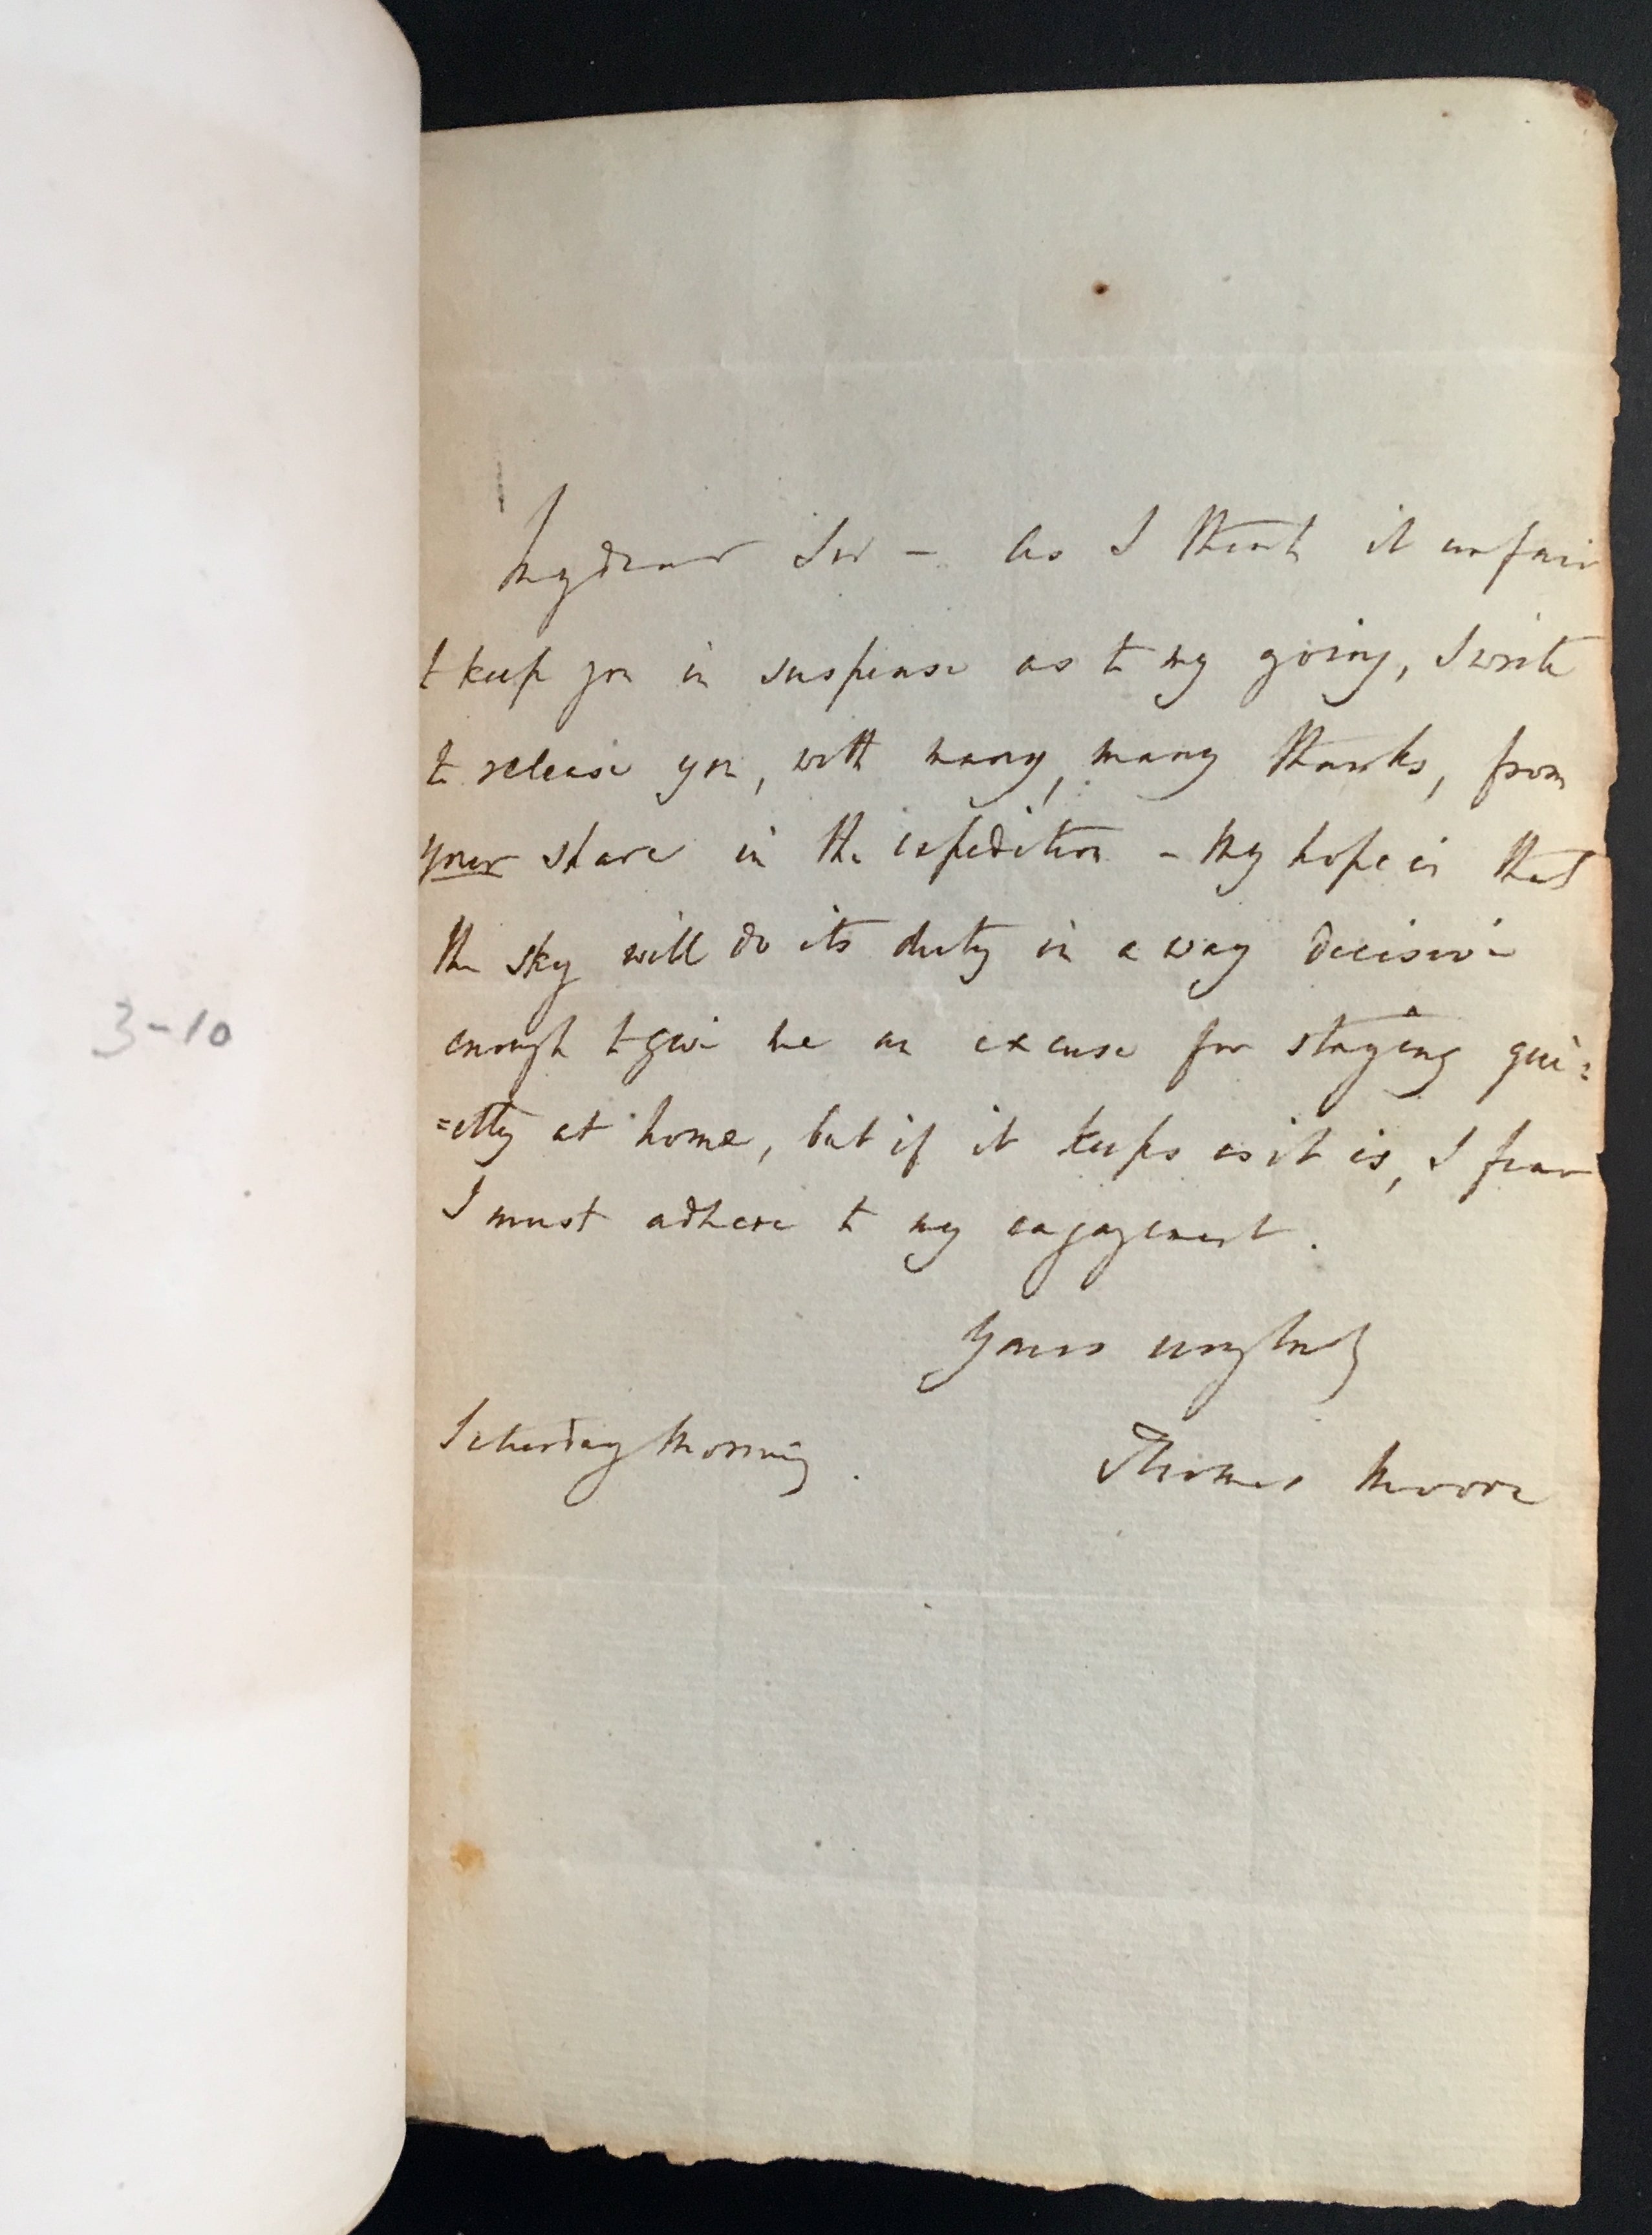 My dear Sir — As I think it unfair
to keep you in suspense as to my going, I write
to release you, with many, many thanks, from
your share in the expedition – My hope is that
the sky will do its duty in a way decisive
enough to give me an excuse for staying qui=
=etly at home, but if it keeps as it is, I fear
I must adhere to my engagement.
Yours very truly
Saturday Morning.
Thomas Moore
3-10